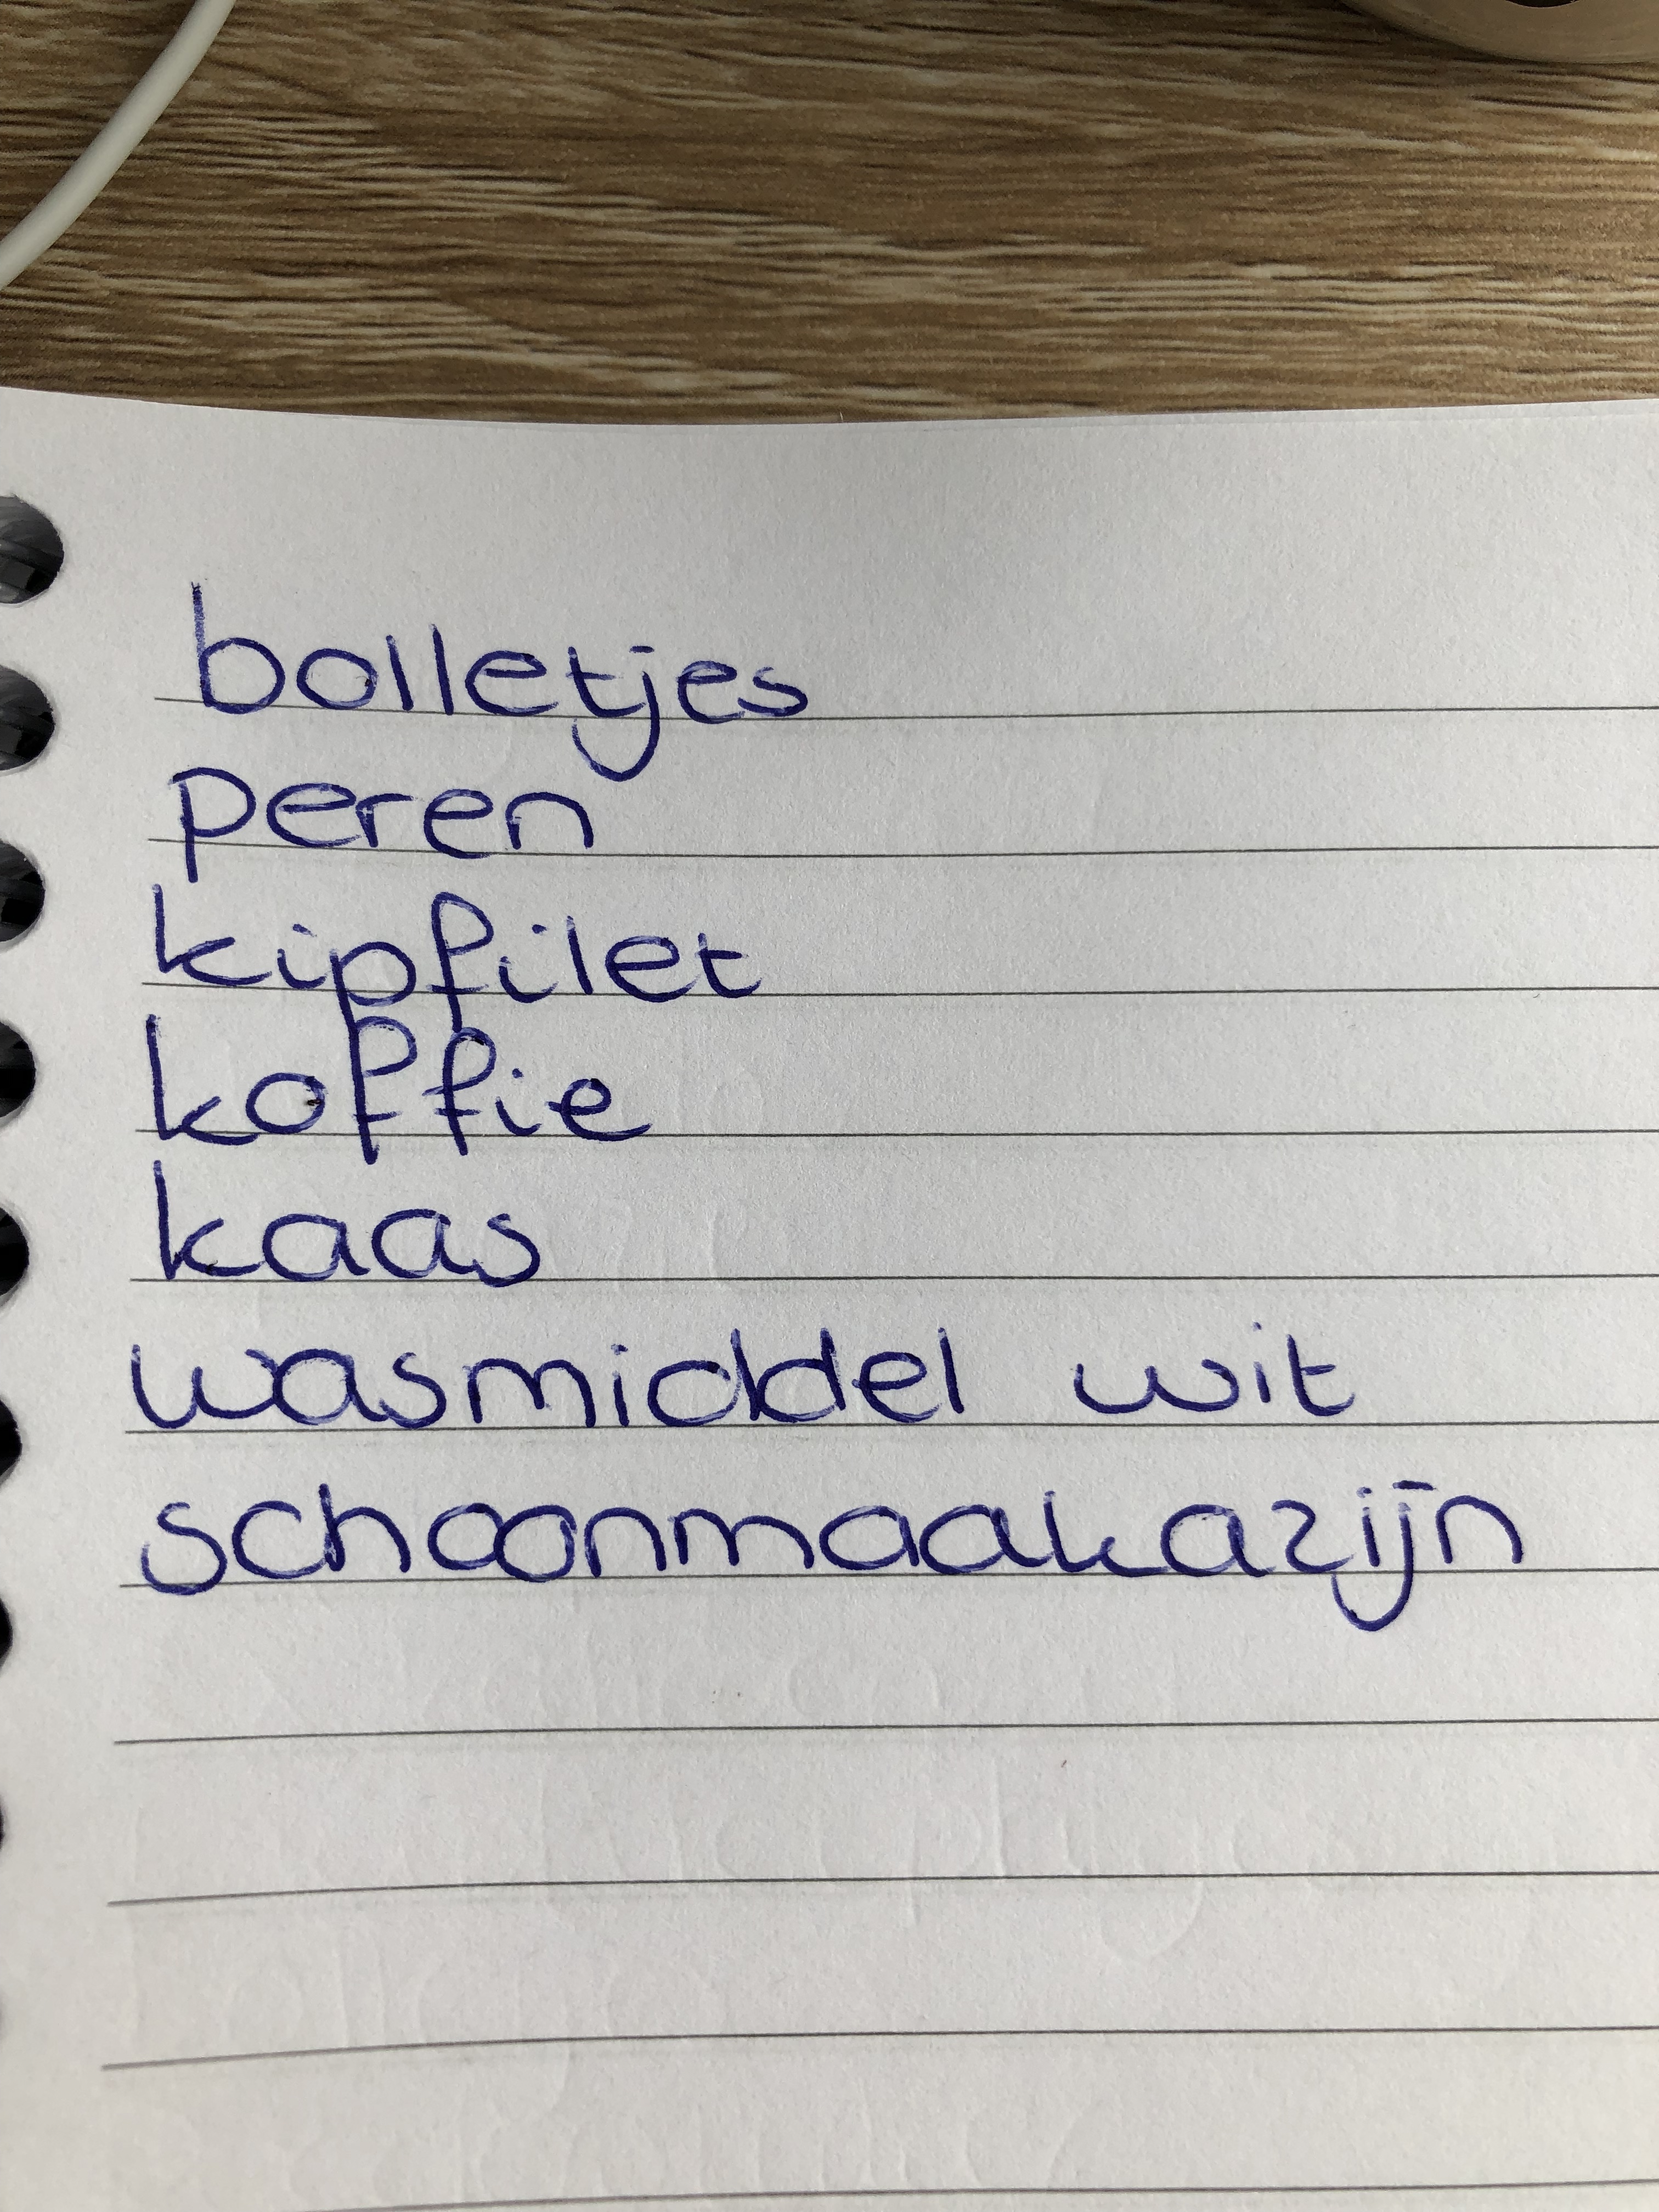 bolletjes
peren
kipfilet
koffie
kaas
wasmiddel wit
schoonmaakazijn